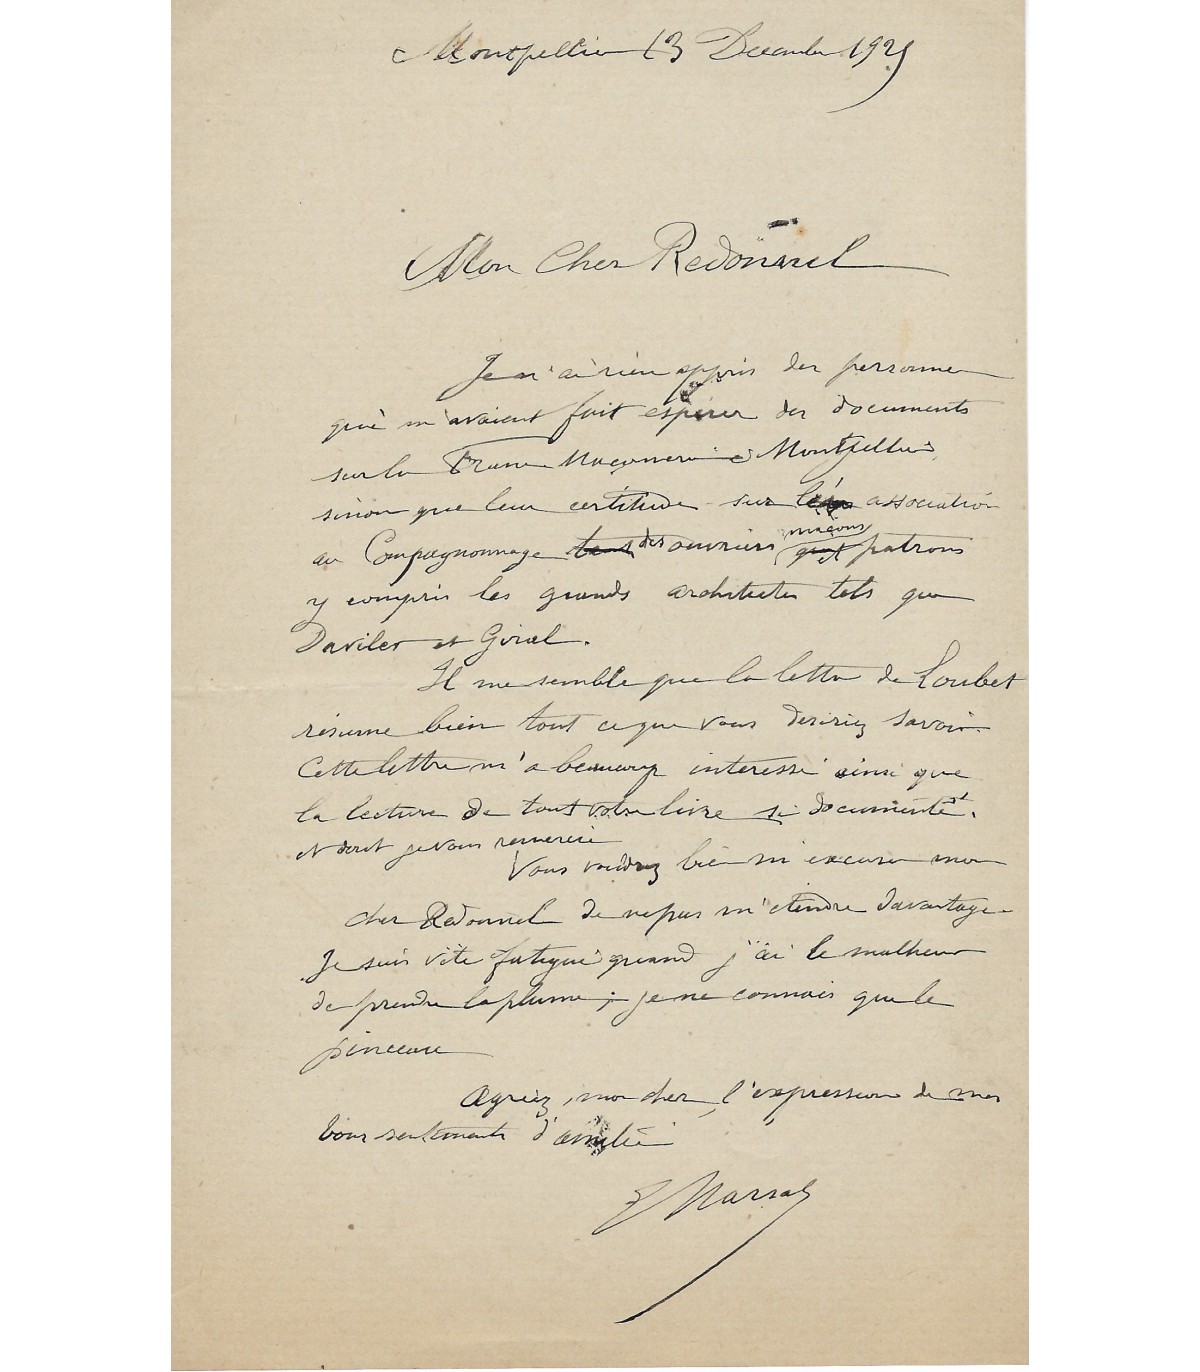 Montpellier 13 Decembre 192
Mon Cher Redonnel
Je n'ai rien appris des personnes
qui m'avaient fait espérer des documents
sur la Franc Maçonnerie à Montpellier
sinon que leur certitude sur association
au Compagnonnage des ouvriers maçons patrons
y compris les grands architectes tels que
Daviler et Giral.
Il me semble que la lettre de Loubet
résume bien tout ce que vous desiriez savoir.
Cette lettre m'a beaucoup interessé ainsi que
la lecture de tout votre livre si documenté.
et dont je vous remercie
Vous voudrez bien m'excuser mon
cher Redonnel de ne pas m'etendre davantage.
Je suis vite fatigué quand j'ai le malheur
de prendre la plume ; je ne connais que le
pinceau
Agréez, mon cher, l'expression de mes
bons sentiments d'amitié
E Marsal